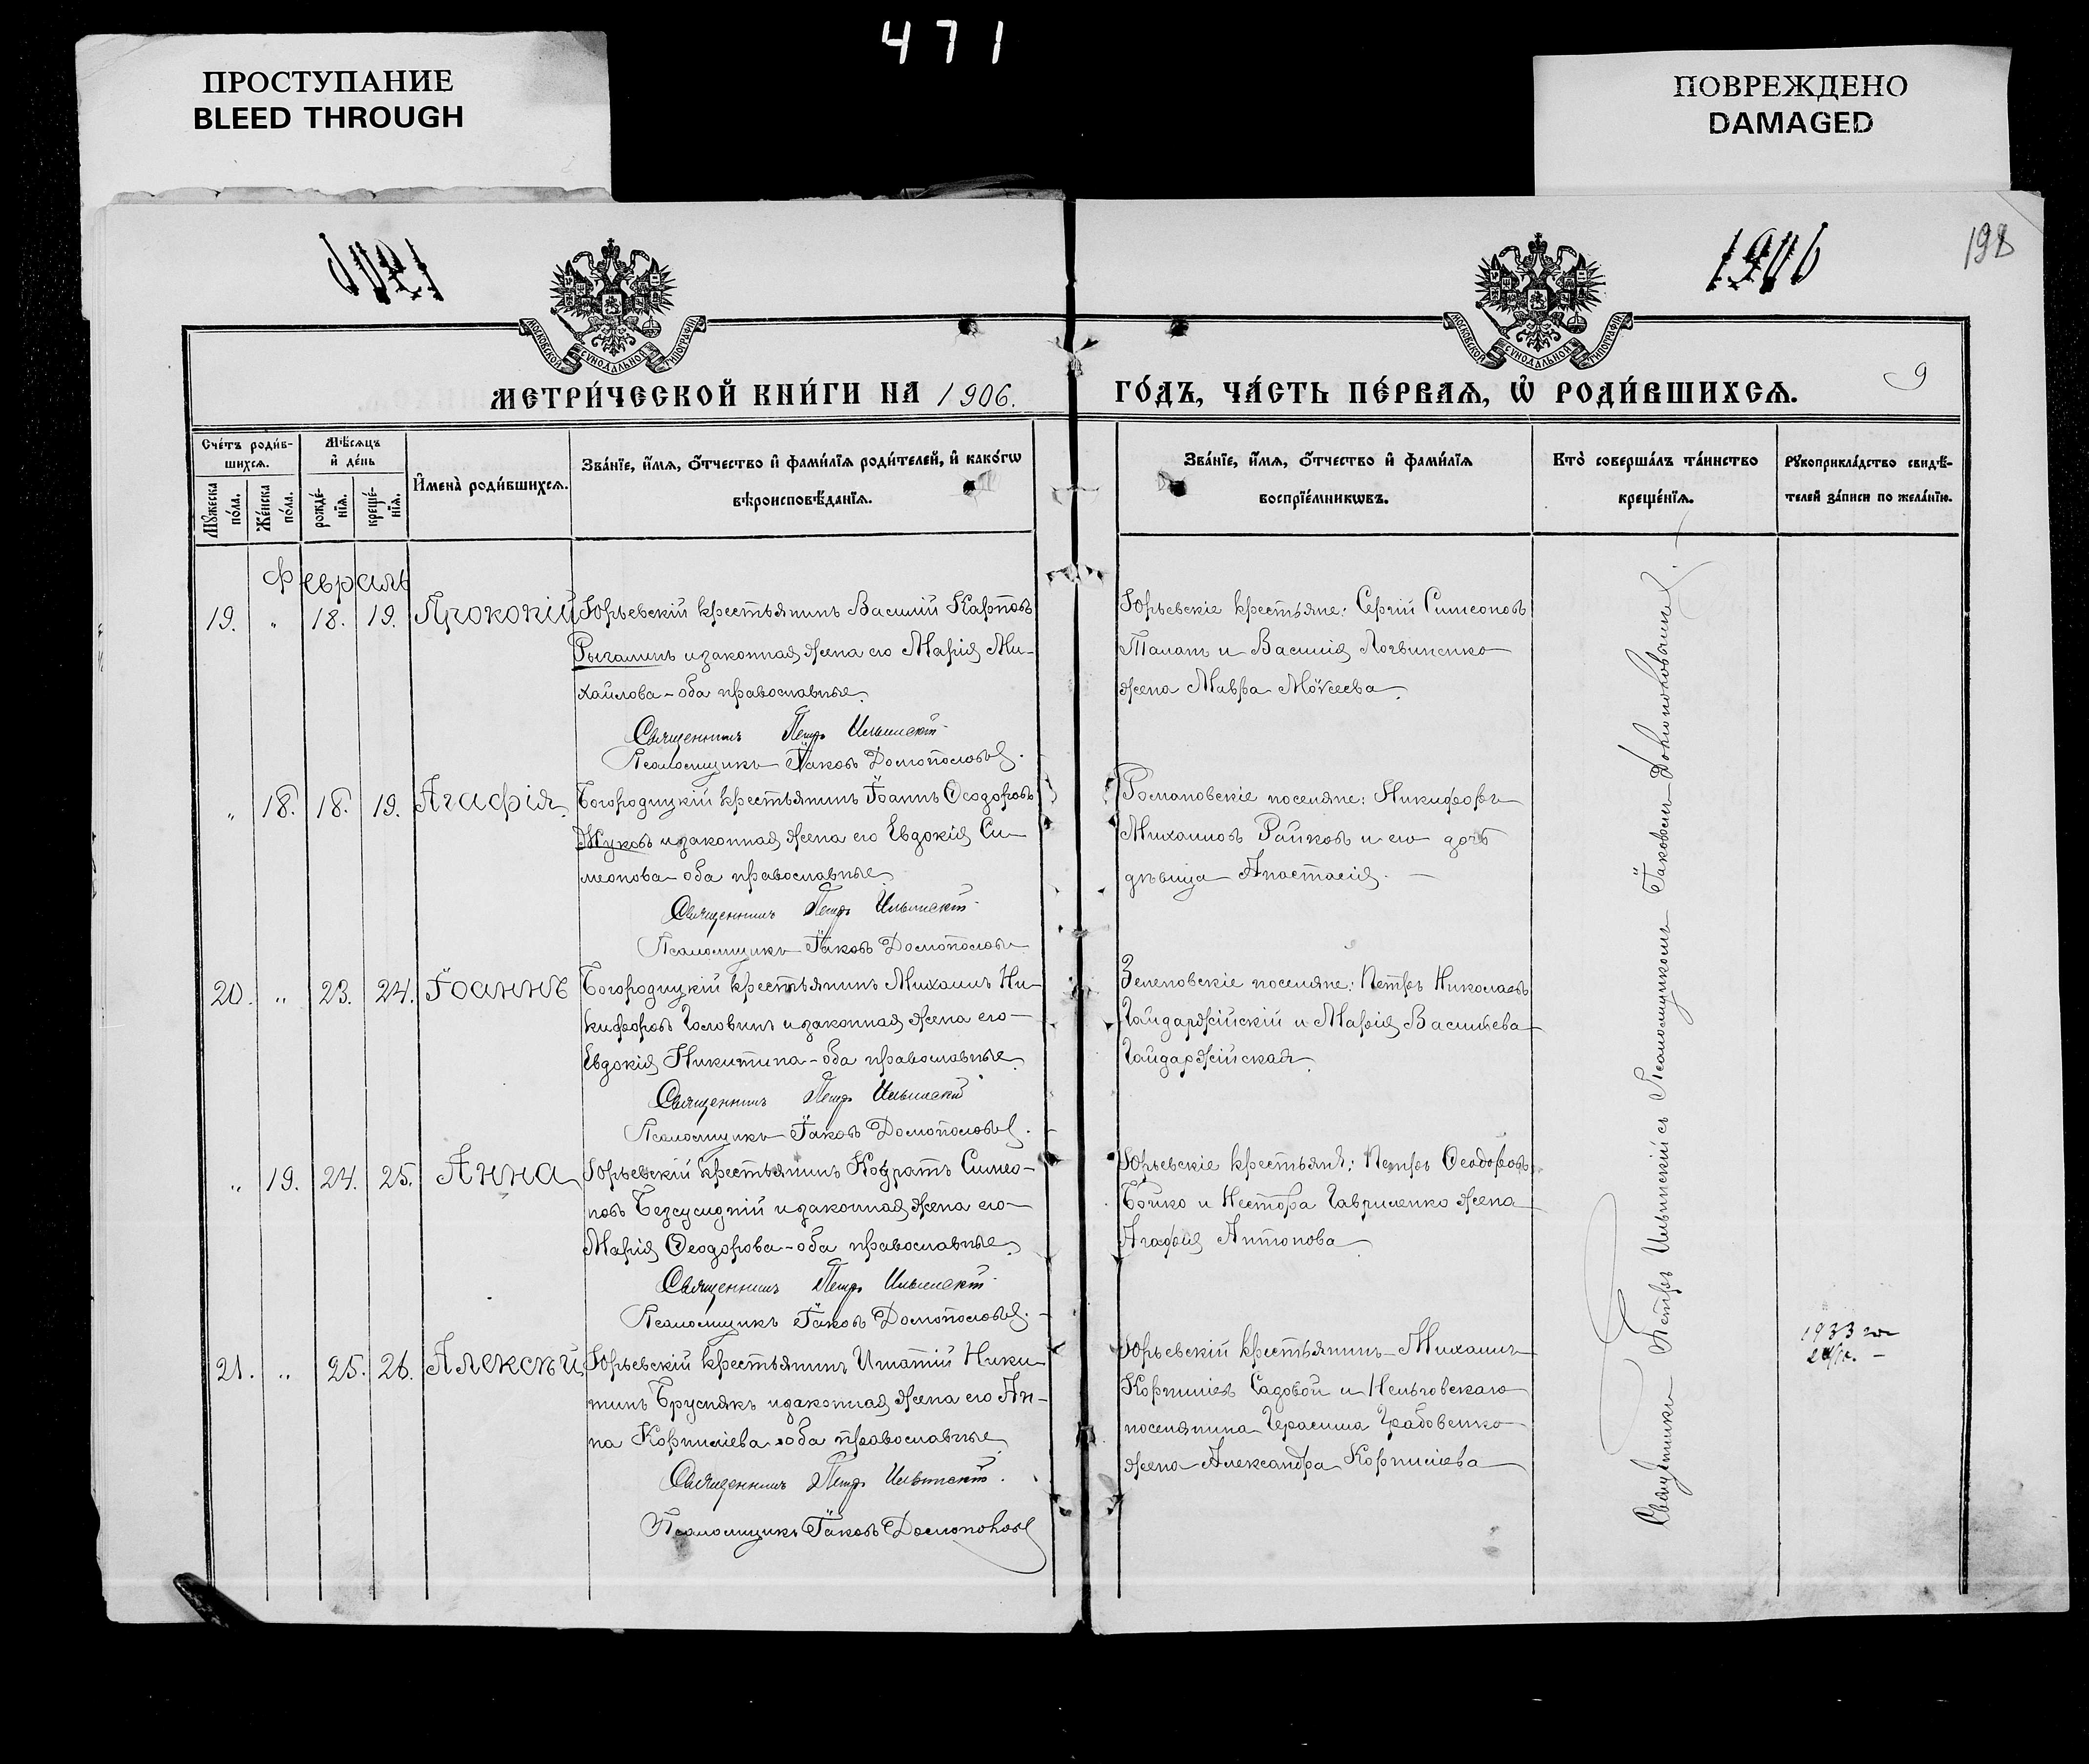 471
ПРОСТУПАНИЕ
BLEED THROUGH
ПОВРЕЖДЕНО
DAMAGED
1906
198
МОСКОВСКОЙ СѴНОДАЛЬНОЙ ТИПОГРАФІИ
МОСКОВСКОЙ СѴНОДАЛЬНОЙ ТИПОГРАФІИ
9
МЕТРИ́ЧЕСКОЙ КНИ́ГИ НА 1906. ГО́ДЪ, ЧА́СТЬ ПЕ́РВАѦ, Ѡ҆ РОДИ́ВШИХСѦ.
Сче́тъ роди́в-
шихсѧ.
Мѹ́жеска по́ла.
Же́нска по́ла.
Мѣ́сѧцъ
и҆ де́нь
рожде́-
нїѧ.
креще́-
нїѧ.
И҆мена̀ роди́вшихсѧ.
Зва́нїе, и҆́мѧ, ѻ҆́тчество и҆ фами́лїѧ роди́телей, и҆ како́гѡ
вѣроисповѣ́данїѧ.
Зва́нїе, и҆́мѧ, ѻ҆́тчество и҆ фами́лїѧ
воспрїе́мникѡвъ.
Кто̀ соверша́лъ та́инство
креще́нїѧ.
Рѹкоприкла́дство свидѣ́-
телей за́писи по жела́нїю.
Февраль
19. " 18. 19. Прокопій
Юрьевскій крестьянинъ Василій Карповъ
Рыгалинъ и законная жена его Марія Ми-
хайлова - оба православные.
Священникъ Петръ Ильинскій
Псаломщикъ Іаковъ Домополовъ.
Юрьевскіе крестьяне: Сергій Симеоновъ
Палатъ и Василія Логвиненко
жена Мавра Моѵсеева.
" 18. 18. 19. Агафія.
Богородицкій крестьянинъ Іоаннъ Ѳеодоровъ
Жуковъ и законная жена его Евдокія Си-
меонова - оба православные.
Священникъ Петръ Ильинскій
Псаломщикъ Іаковъ Домополовъ
Романовскіе поселяне: Никифоръ
Михаиловъ Райковъ и его дочь
дѣвица Анастасія. -
20. " 23. 24. Іоаннъ
Богородицкій крестьянинъ Михаилъ Ни-
кифоровъ Головинъ и законная жена его
Евдокія Никитина - оба православные.
Священникъ Петръ Ильинскій
Псаломщикъ Іаковъ Домополовъ.
Зеленовскіе поселяне: Петръ Николаевъ
Гайдаржійскій и Марія Васильева
Гайдаржійская.
" 19. 24. 25. Анна
Юрьевскій крестьянинъ Кодратъ Симео-
новъ Безсусидній и законная жена его
Марія Ѳеодорова - оба православные.
Священникъ Петръ Ильинскій
Псаломщикъ Іаковъ Домополовъ.
Юрьевскіе крестьяне: Петръ Ѳеодоровъ
Бойко и Нестора Гавриленко жена
Агафія Антонова.
21. " 25. 26. Алексѣй
Юрьевскій крестьянинъ Игнатій Ники-
тинъ Бруснякъ и законная жена его Ан-
на Корнилієва - оба православные.
Священникъ Петръ Ильинскій.
Псаломщикъ Іаковъ Домополовъ
Юрьевскій крестьянинъ Михаилъ
Корниліевъ Садовой и Нельговскаго
поселянина Герасима Грабовенко
жена Александра Корниліева
Священникъ Петръ Ильинскій съ Псаломщикомъ Іаковомъ
1933